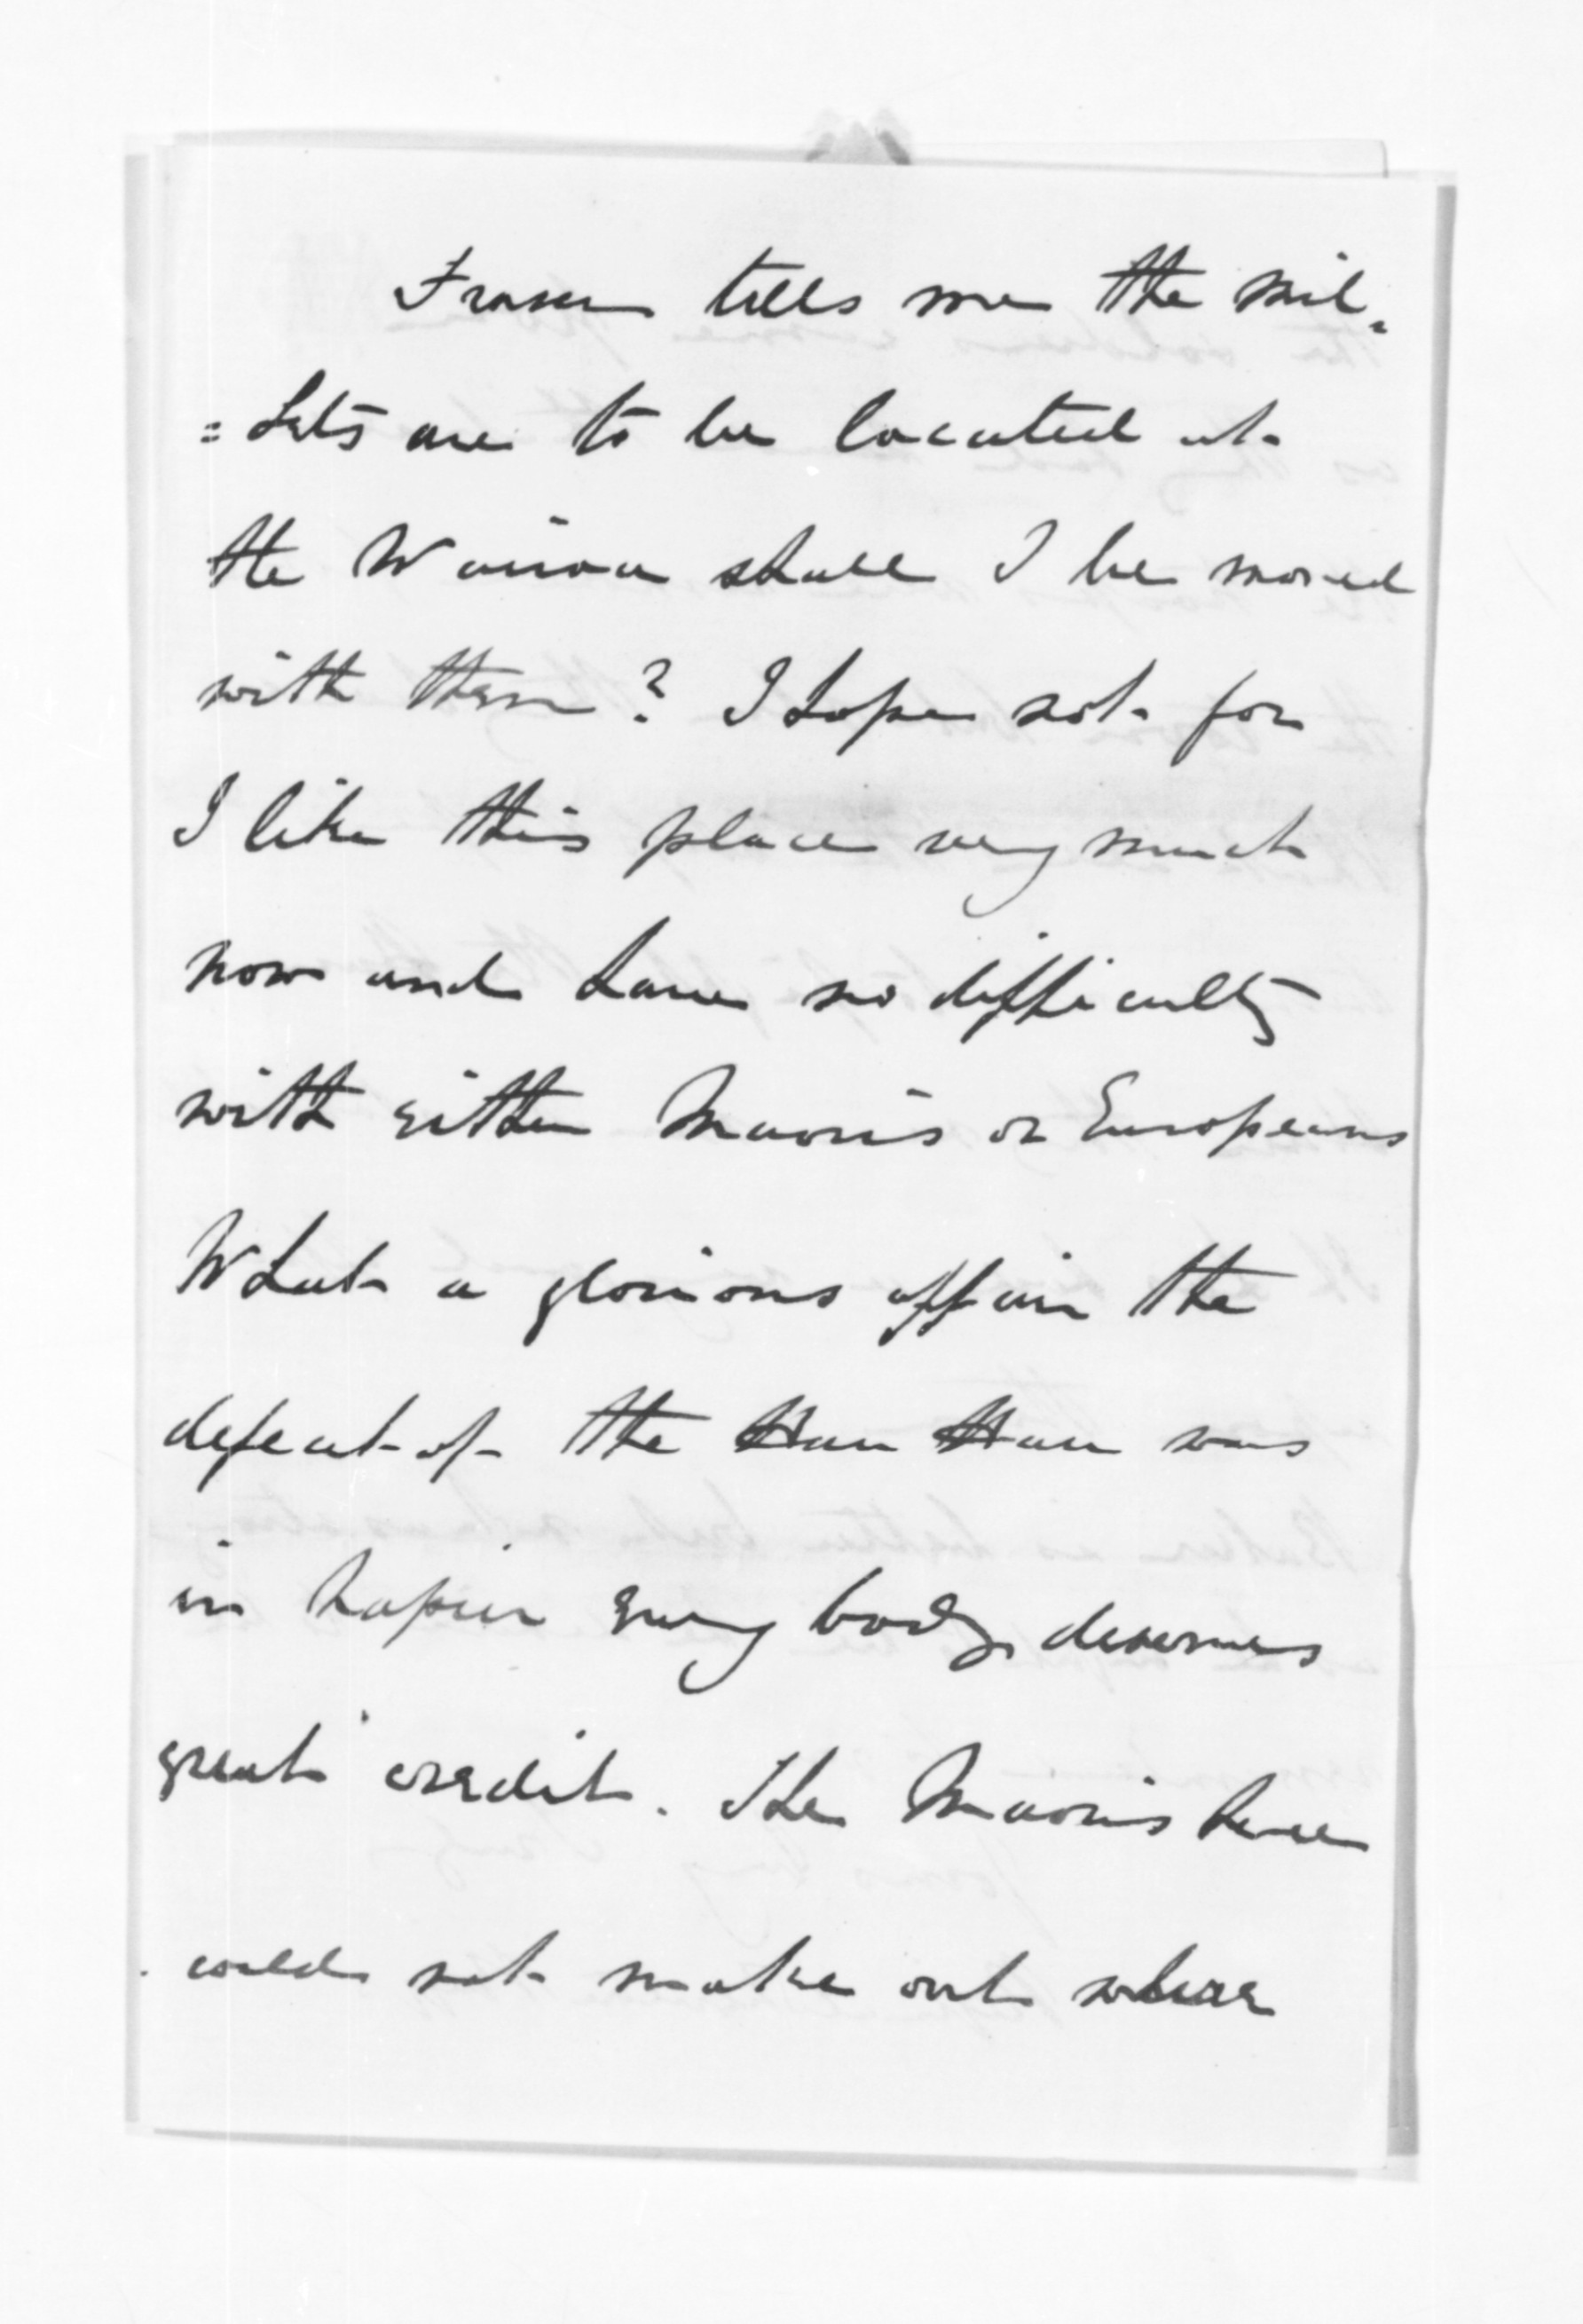 Fraser tells me the mil=
are to be located at
the Wairoa shall I be moved
with them? I hope not for
I like this place very much
now and have no difficulty
with either Maoris or Europeans
What a glorious affair the
defeat of the Hau Hau was
in Napier every body deserves
great credit. The Maoris here
could not make out where